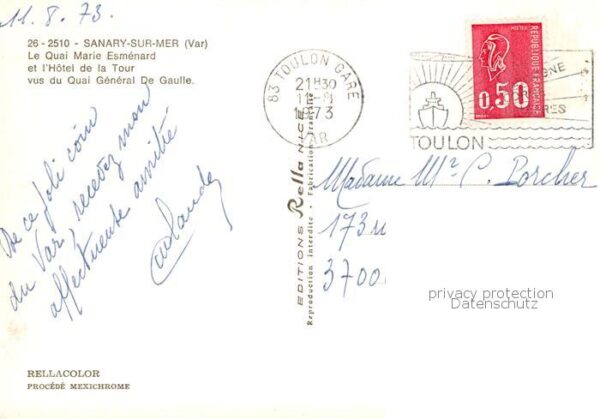 11.8.73.
26 - 2510 - SANARY-SUR-MER (Var)
Le Quai Marie Esménard
et l'Hôtel de la Tour
vus du Quai Général De Gaulle.
De ce joli coin
du Var, recevez mon
affectueuse amitié
83 TOULON GARE
21H30
11-8
1973
VAR
TOULON
0,50
REPUBLIQUE FRANÇAISE
EDITIONS Rella NICE
Reproduction interdite - Fabrication Française
Madame Mr C. Porcher
173
3700
privacy protection
Datenschutz
RELLACOLOR
PROCÉDÉ MEXICHROME